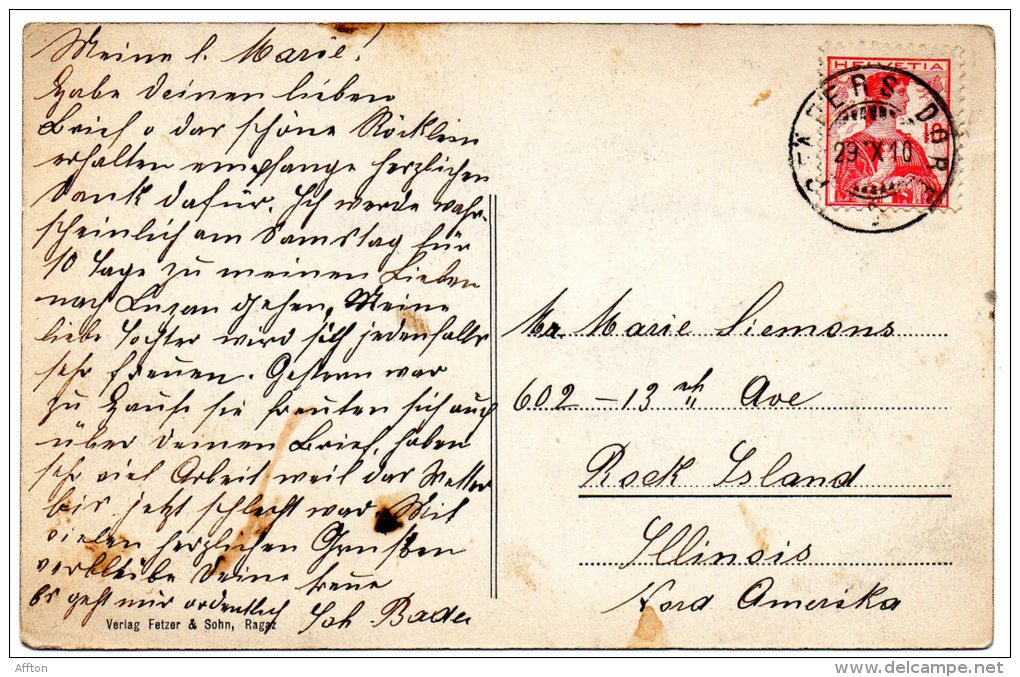 Meine l. Marie!
Habe Deinen lieben
Brief o das schöne Röcklein
erhalten empfange herzlichen
Dank dafür. Ich werde wahr-
scheinlich am Samstag für
10 Tage zu meinen Lieben
nach Luzern gehen, Meine
liebe Tochter wird sich jedenfalls
sehr freuen. Gestern war
zu Hause sie freuten sich auch
über Deinen Brief, haben
sehr viel Arbeit weil das Wetter
bis jetzt schlecht war. Mit
vielen herzlichen Grüßen
verbleibe Deine treue
Es geht mir ordentlich Joh Bader
Verlag Fetzer & Sohn, Ragaz
HELVETIA
10
29 X 10
Marie Siemons
602 – 13 th Ave
Rock Island
Illinois
Nord Amerika
Affton
www.delcampe.net